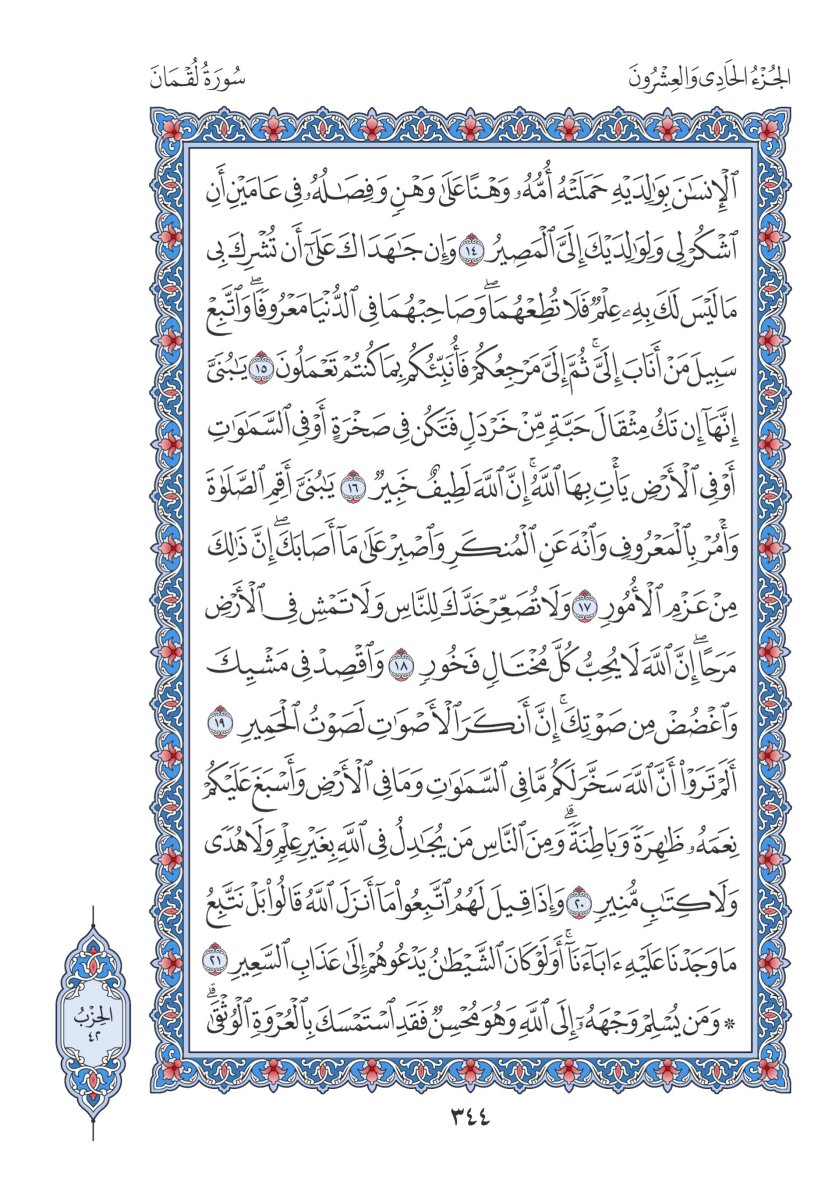 الجُزْءُ الحَادِى وَالعِشْرُونَ
سُورَةُ لُقْمَانَ
ٱلْإِنسَٰنَ بِوَٰلِدَيْهِ حَمَلَتْهُ أُمُّهُۥ وَهْنًا عَلَىٰ وَهْنٍ وَفِصَٰلُهُۥ فِى عَامَيْنِ أَنِ
ٱشْكُرْ لِى وَلِوَٰلِدَيْكَ إِلَىَّ ٱلْمَصِيرُ ١٤ وَإِن جَٰهَدَاكَ عَلَىٰٓ أَن تُشْرِكَ بِى
مَا لَيْسَ لَكَ بِهِۦ عِلْمٌ فَلَا تُطِعْهُمَا ۖ وَصَاحِبْهُمَا فِى ٱلدُّنْيَا مَعْرُوفًا ۖ وَٱتَّبِعْ
سَبِيلَ مَنْ أَنَابَ إِلَىَّ ۚ ثُمَّ إِلَىَّ مَرْجِعُكُمْ فَأُنَبِّئُكُم بِمَا كُنتُمْ تَعْمَلُونَ ١٥ يَٰبُنَىَّ
إِنَّهَآ إِن تَكُ مِثْقَالَ حَبَّةٍ مِّنْ خَرْدَلٍ فَتَكُن فِى صَخْرَةٍ أَوْ فِى ٱلسَّمَٰوَٰتِ
أَوْ فِى ٱلْأَرْضِ يَأْتِ بِهَا ٱللَّهُ ۚ إِنَّ ٱللَّهَ لَطِيفٌ خَبِيرٌ ١٦ يَٰبُنَىَّ أَقِمِ ٱلصَّلَوٰةَ
وَأْمُرْ بِٱلْمَعْرُوفِ وَٱنْهَ عَنِ ٱلْمُنكَرِ وَٱصْبِرْ عَلَىٰ مَآ أَصَابَكَ ۖ إِنَّ ذَٰلِكَ
مِنْ عَزْمِ ٱلْأُمُورِ ١٧ وَلَا تُصَعِّرْ خَدَّكَ لِلنَّاسِ وَلَا تَمْشِ فِى ٱلْأَرْضِ
مَرَحًا ۖ إِنَّ ٱللَّهَ لَا يُحِبُّ كُلَّ مُخْتَالٍ فَخُورٍ ١٨ وَٱقْصِدْ فِى مَشْيِكَ
وَٱغْضُضْ مِن صَوْتِكَ ۚ إِنَّ أَنكَرَ ٱلْأَصْوَٰتِ لَصَوْتُ ٱلْحَمِيرِ ١٩
أَلَمْ تَرَوْا۟ أَنَّ ٱللَّهَ سَخَّرَ لَكُم مَّا فِى ٱلسَّمَٰوَٰتِ وَمَا فِى ٱلْأَرْضِ وَأَسْبَغَ عَلَيْكُمْ
نِعَمَهُۥ ظَٰهِرَةً وَبَاطِنَةً ۗ وَمِنَ ٱلنَّاسِ مَن يُجَٰدِلُ فِى ٱللَّهِ بِغَيْرِ عِلْمٍ وَلَا هُدًى
وَلَا كِتَٰبٍ مُّنِيرٍ ٢٠ وَإِذَا قِيلَ لَهُمُ ٱتَّبِعُوا۟ مَآ أَنزَلَ ٱللَّهُ قَالُوا۟ بَلْ نَتَّبِعُ
مَا وَجَدْنَا عَلَيْهِ ءَابَآءَنَآ ۚ أَوَلَوْ كَانَ ٱلشَّيْطَٰنُ يَدْعُوهُمْ إِلَىٰ عَذَابِ ٱلسَّعِيرِ ٢١
۞ وَمَن يُسْلِمْ وَجْهَهُۥٓ إِلَى ٱللَّهِ وَهُوَ مُحْسِنٌ فَقَدِ ٱسْتَمْسَكَ بِٱلْعُرْوَةِ ٱلْوُثْقَىٰ ۗ
الحِزْبُ
٤٢
٣٤٤